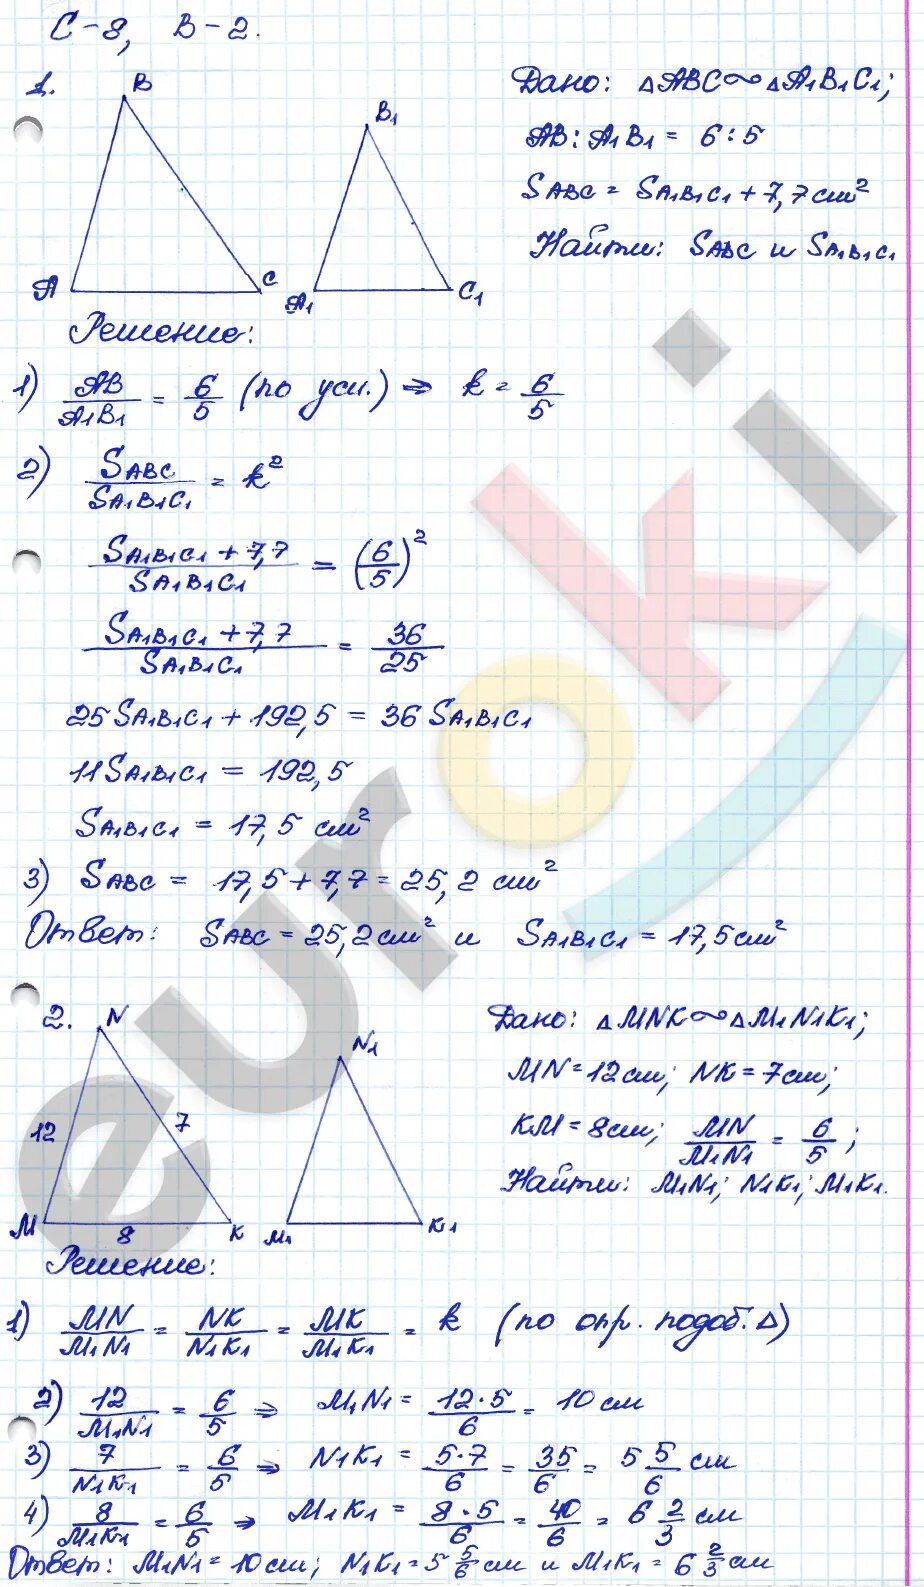 С-8, В-2.
1.
B
A
C
B₁
A₁
C₁
Дано: △ABC ∾ △A₁B₁C₁;
AB : A₁B₁ = 6 : 5
SABC = SA₁B₁C₁ + 7,7 см²
Найти: SABC и SA₁B₁C₁
Решение:
1) AB/A₁B₁ = 6/5 (по усл.) ⇒ k = 6/5
2) SABC/SA₁B₁C₁ = k²
(SA₁B₁C₁ + 7,7)/SA₁B₁C₁ = (6/5)²
(SA₁B₁C₁ + 7,7)/SA₁B₁C₁ = 36/25
25 SA₁B₁C₁ + 192,5 = 36 SA₁B₁C₁
11 SA₁B₁C₁ = 192,5
SA₁B₁C₁ = 17,5 см²
3) SABC = 17,5 + 7,7 = 25,2 см²
Ответ: SABC = 25,2 см² и SA₁B₁C₁ = 17,5 см²
2.
N
12
7
M
8
K
N₁
M₁
K₁
Дано: △MNK ∾ △M₁N₁K₁;
MN = 12 см; NK = 7 см;
KM = 8 см; MN/M₁N₁ = 6/5;
Найти: M₁N₁; N₁K₁; M₁K₁.
Решение:
1) MN/M₁N₁ = NK/N₁K₁ = MK/M₁K₁ = k (по опр. подоб. △)
2) 12/M₁N₁ = 6/5 ⇒ M₁N₁ = 12·5/6 = 10 см
3) 7/N₁K₁ = 6/5 ⇒ N₁K₁ = 5·7/6 = 35/6 = 5 5/6 см
4) 8/M₁K₁ = 6/5 ⇒ M₁K₁ = 8·5/6 = 40/6 = 6 2/3 см
Ответ: M₁N₁ = 10 см; N₁K₁ = 5 5/6 см и M₁K₁ = 6 2/3 см
euroki